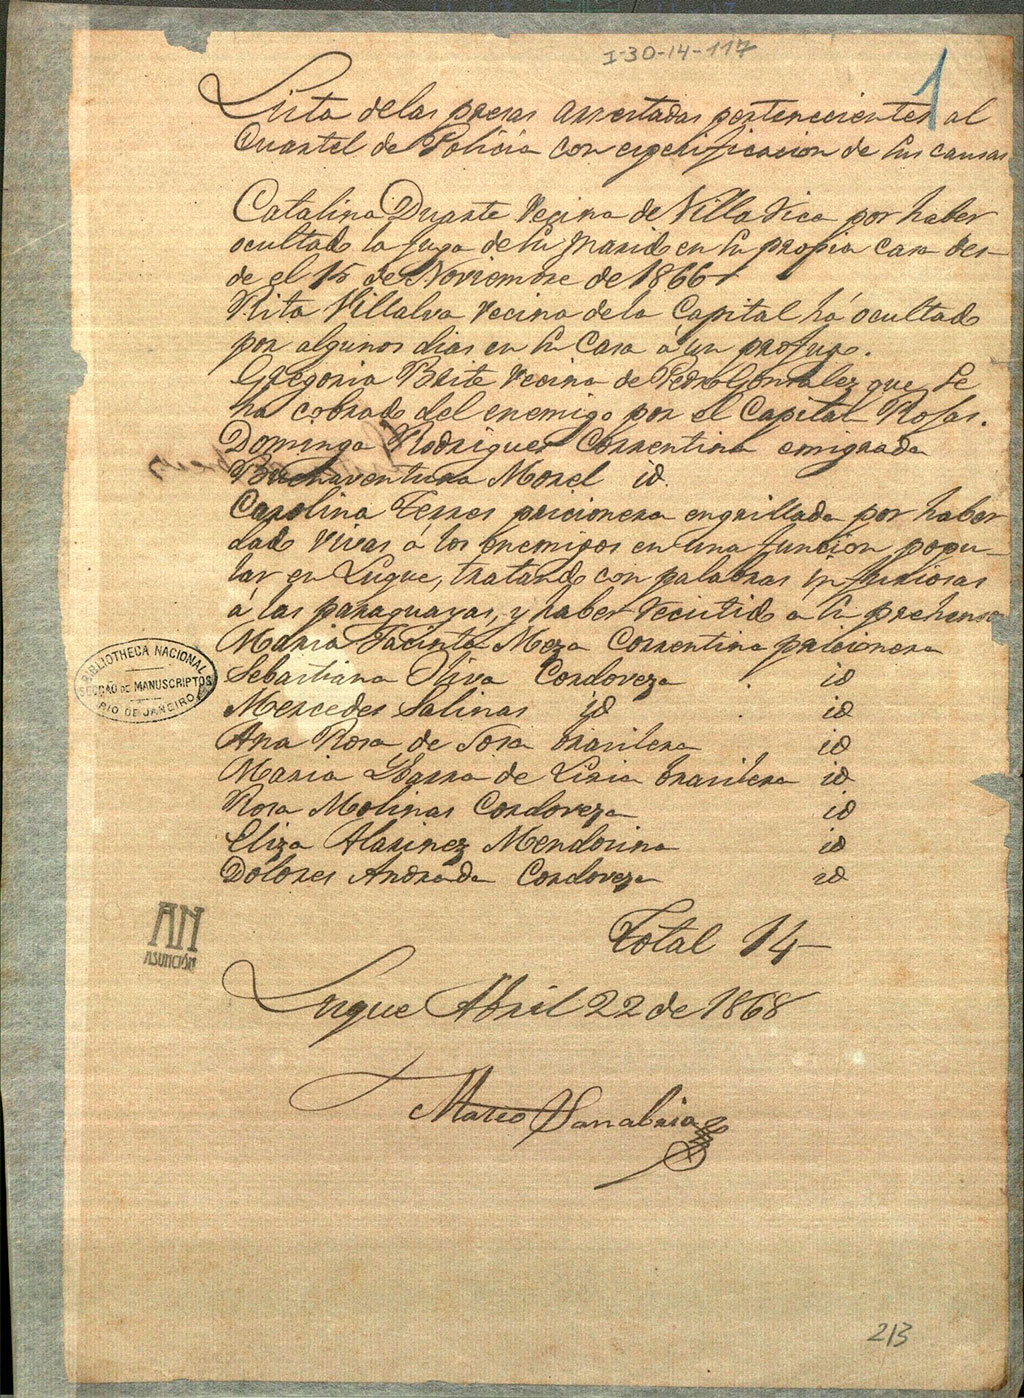 I-30-14-117
1
Lista de las presas arrestadas pertenecientes al
Cuartel de Policia con espesificacion de sus causas
Catalina Duarte Vecina de Villa Rica por haber
ocultado la fuga de su marido en su propia casa des-
de el 15 de Noviembre de 1866
Rita Villalva Vecina de la Capital há ocultado
por algunos dias en su casa á un profugo.
Gregoria Brite Vecina de Pedro Gonzalez que se
ha cobrado del enemigo por el Capital Rojas.
Dominga Rodrigues Correntina emigrada
Buenaventura Morel id.
Carolina Terres pricionera engrillada por haber
dado Vivas á los enemigos en una funcion popu-
lar en Luque, tratando con palabras injuriosas
á las paraguayas, y haber recistido a su prehenso
Maria Jacinta Meza Correntina pricionera
Sebastiana Oliva Cordoveza . id
Mercedes Salinas id . id
Ana Rosa de Sosa brasilera id
Maria Ybarra de Liria brasilera id
Rosa Molinas Cordoveza id
Eliza Alarinez Mendosina id
Dolores Andrada Cordoveza id
Total 14-
Luque Abril 22 de 1868
Mateo Sanabria
BIBLIOTHECA NACIONAL
SECÇÃO DE MANUSCRIPTOS
RIO DE JANEIRO
AN
ASUNCIÓN
213